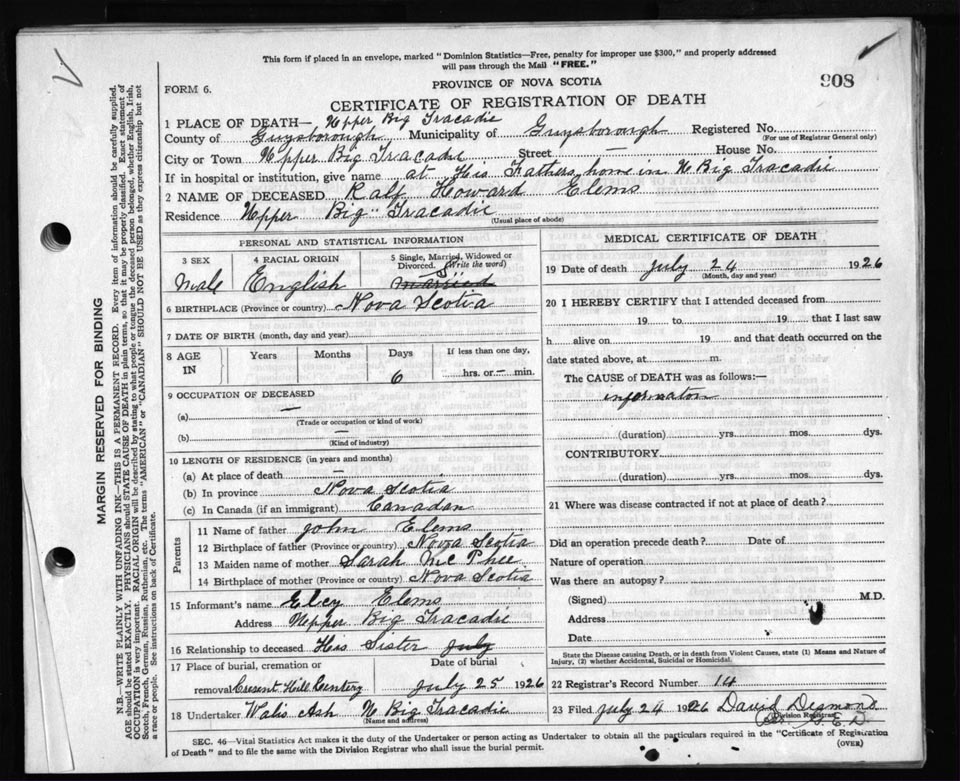 This form if placed in an envelope, marked "Dominion Statistics—Free, penalty for improper use $300," and properly addressed
will pass through the Mail "FREE."
PROVINCE OF NOVA SCOTIA
908
FORM 6.
CERTIFICATE OF REGISTRATION OF DEATH
1 PLACE OF DEATH— Upper Big Tracadie
County of Guysborough Municipality of Guysborough Registered No.
(For use of Registrar General only)
City or Town Upper Big Tracadie Street — House No.
If in hospital or institution, give name at His Fathers home in U Big Tracadie
2 NAME OF DECEASED Ralf Howard Elems
Residence Upper Big Tracadie
(Usual place of abode)
PERSONAL AND STATISTICAL INFORMATION
3 SEX
Male
4 RACIAL ORIGIN
English
5 Single, Married, Widowed or
Divorced. (Write the word)
Married
6 BIRTHPLACE (Province or country) Nova Scotia
7 DATE OF BIRTH (month, day and year)
8 AGE IN Years Months Days If less than one day,
6 hrs. or — min.
9 OCCUPATION OF DECEASED
(a) —
(Trade or occupation or kind of work)
(b) —
(Kind of industry)
10 LENGTH OF RESIDENCE (in years and months)
(a) At place of death —
(b) In province Nova Scotia
(c) In Canada (if an immigrant) Canadan
Parents
11 Name of father John Elems
12 Birthplace of father (Province or country) Nova Scotia
13 Maiden name of mother Sarah McPhee
14 Birthplace of mother (Province or country) Nova Scotia
15 Informant's name Elcy Elems
Address Upper Big Tracadie
16 Relationship to deceased His Sister July
17 Place of burial, cremation or Date of burial
removal Cresent Hill July 25 1926
18 Undertaker Walis Ash U Big Tracadie
(Name and address)
MEDICAL CERTIFICATE OF DEATH
19 Date of death July 24 1926
(Month, day and year)
20 I HEREBY CERTIFY that I attended deceased from
19 to 19 that I last saw
h alive on 19 and that death occurred on the
date stated above, at m.
The CAUSE of DEATH was as follows:—
informaton
(duration) yrs. mos. dys.
CONTRIBUTORY
(duration) yrs. mos. dys.
21 Where was disease contracted if not at place of death?
Did an operation precede death? Date of
Nature of operation
Was there an autopsy?
(Signed) M.D.
Address
Date
State the Disease causing Death, or in death from Violent Causes, state (1) Means and Nature of
Injury, (2) whether Accidental, Suicidal or Homicidal.
22 Registrar's Record Number 14
23 Filed July 24 1926 David Desmond
Division Registrar
SEC. 46—Vital Statistics Act makes it the duty of the Undertaker or person acting as Undertaker to obtain all the particulars required in the "Certificate of Registration
of Death" and to file the same with the Division Registrar who shall issue the burial permit.
(OVER)
MARGIN RESERVED FOR BINDING
N.B.—WRITE PLAINLY WITH UNFADING INK—THIS IS A PERMANENT RECORD. Every item of information should be carefully supplied.
AGE should be stated EXACTLY. PHYSICIANS should STATE CAUSE OF DEATH in plain terms, so that it may be properly classified. Exact statement of
OCCUPATION is very important. RACIAL ORIGIN will be described by stating to what people or tongue the deceased person belonged, whether English, Irish,
Scotch, French, German, Russian, Ruthenian, etc. The terms "AMERICAN" or "CANADIAN" SHOULD NOT BE USED as they express citizenship but not
a race or people. See instructions on back of Certificate.